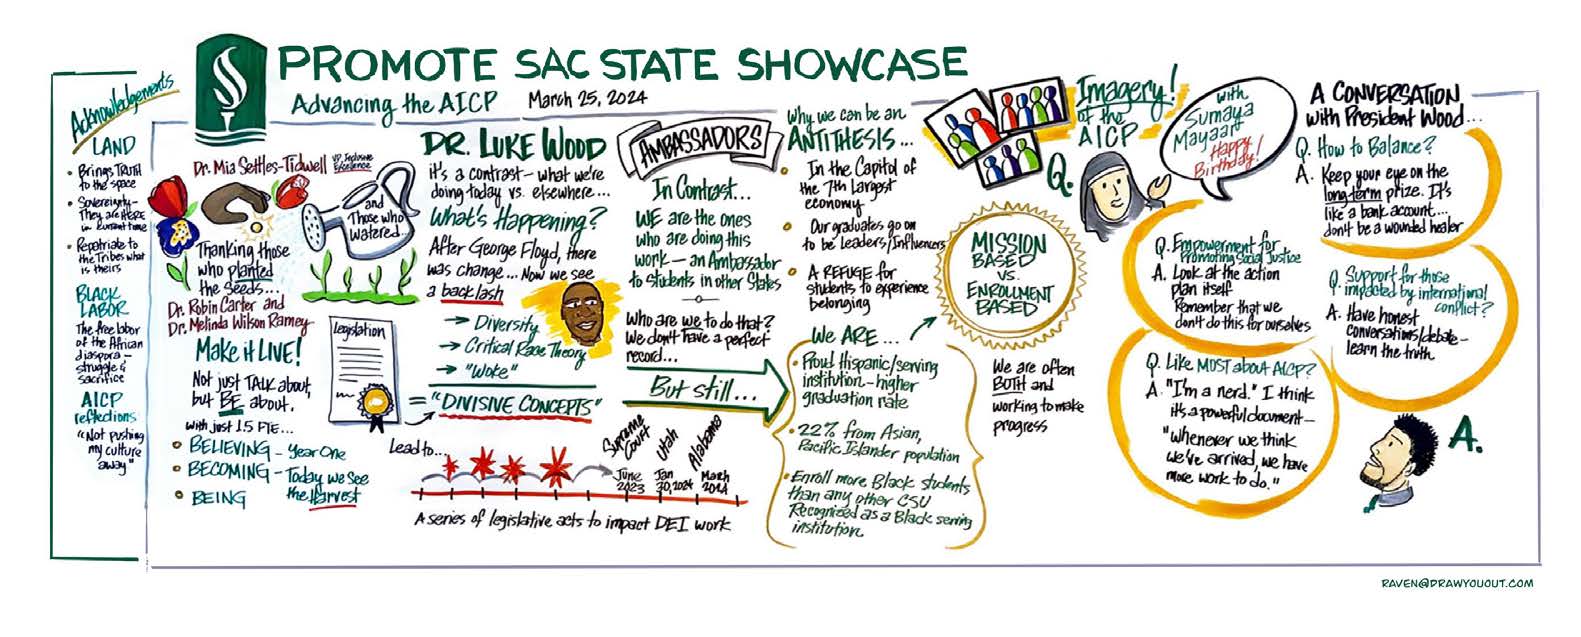 PROMOTE SAC STATE SHOWCASE
Advancing the AICP March 25, 2024
Acknowledgements
LAND
• Brings TRUTH
to the space
• Sovereignty –
They are HERE
in current time
• Repatriate to
the Tribes what
is theirs
BLACK
LABOR
The free labor
of the African
diaspora –
struggle &
sacrifice
AICP
reflections
"Not pushing
my culture
away"
Dr. Mia Settles-Tidwell VP Inclusive
Excellence
and
Those who
watered...
Thanking those
who planted
the Seeds...
Dr. Robin Carter and
Dr. Melinda Wilson Ramey
Make it LIVE!
Not just TALK about,
but BE about.
with just 1.5 FTE...
• BELIEVING – Year One
• BECOMING – Today we See
the Harvest
• BEING
legislation
DR. LUKE WOOD
it's a contrast – what we're
doing today vs. elsewhere...
What's Happening?
After George Floyd, there
was change... Now we see
a backlash
→ Diversity
→ Critical Race Theory
→ "Woke"
= "DIVISIVE CONCEPTS"
Lead to...
Supreme
Court
Utah
Alabama
June
2023
Jan
30, 2024
March
2024
A series of legislative acts to impact DEI work
AMBASSADORS
In Contrast...
WE are the ones
who are doing this
work – an Ambassador
to students in other States
Who are we to do that?
We don't have a perfect
record...
But still...
Why we can be an
ANTITHESIS...
• In the Capitol of
the 7th Largest
economy
• Our graduates go on
to be Leaders/Influencers
• A REFUGE for
students to experience
belonging
WE ARE...
• Proud Hispanic/serving
institution – higher
graduation rate
• 22% from Asian,
Pacific Islander population
• Enroll more Black students
than any other CSU
Recognized as a Black serving
institution.
MISSION
BASED
VS.
ENROLLMENT
BASED
We are often
BOTH and
working to make
progress
Imagery!
of the
AICP
Q.
with
Sumaya
Mayaar
Happy
Birthday!
Q. Empowerment for
Promoting Social Justice
A. Look at the action
plan itself
Remember that we
don't do this for ourselves
Q. Like MOST about AICP?
A. "I'm a nerd." I think
it's a powerful document –
"Whenever we think
we've arrived, we have
more work to do."
A CONVERSATION
with President Wood...
Q. How to Balance?
A. Keep your eye on the
long-term prize. It's
like a bank account...
don't be a wounded healer
Q. Support for those
impacted by international
conflict?
A. Have honest
conversations/debate –
learn the truth
A.
RAVEN@DRAWYOUOUT.COM